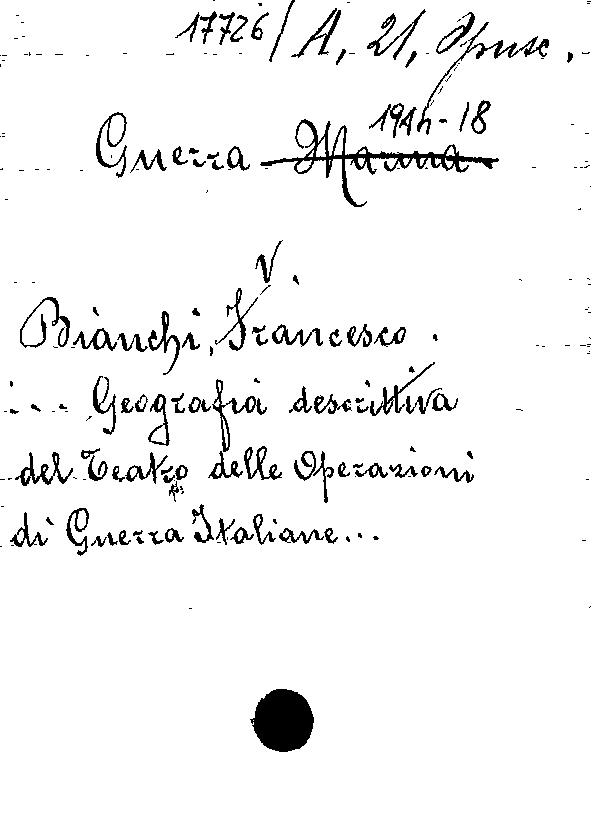 17726 / A, 21, Opusc.
1914-18
Guerra Marina
V.
Bianchi, Francesco.
... Geografia descrittiva
del Teatro delle Operazioni
di Guerra Italiane...